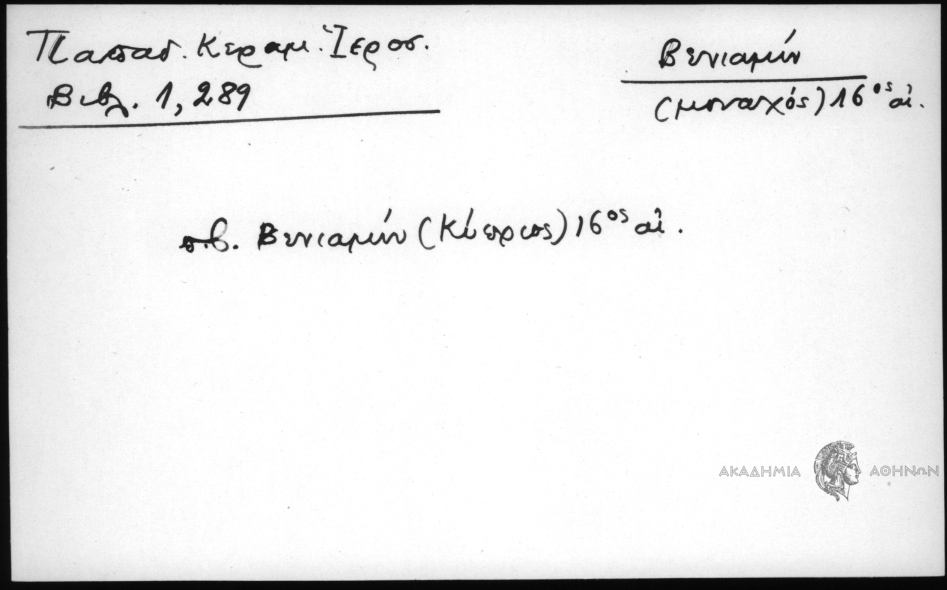 Παπαδ. Κεραμ. Ἱεροσ.
Βιβλ. 1, 289
Βενιαμίν
(μοναχός) 16ος αἰ.
πβ. Βενιαμίν (Κύπριος) 16ος αἰ.
ΑΚΑΔΗΜΙΑ ΑΘΗΝΩΝ